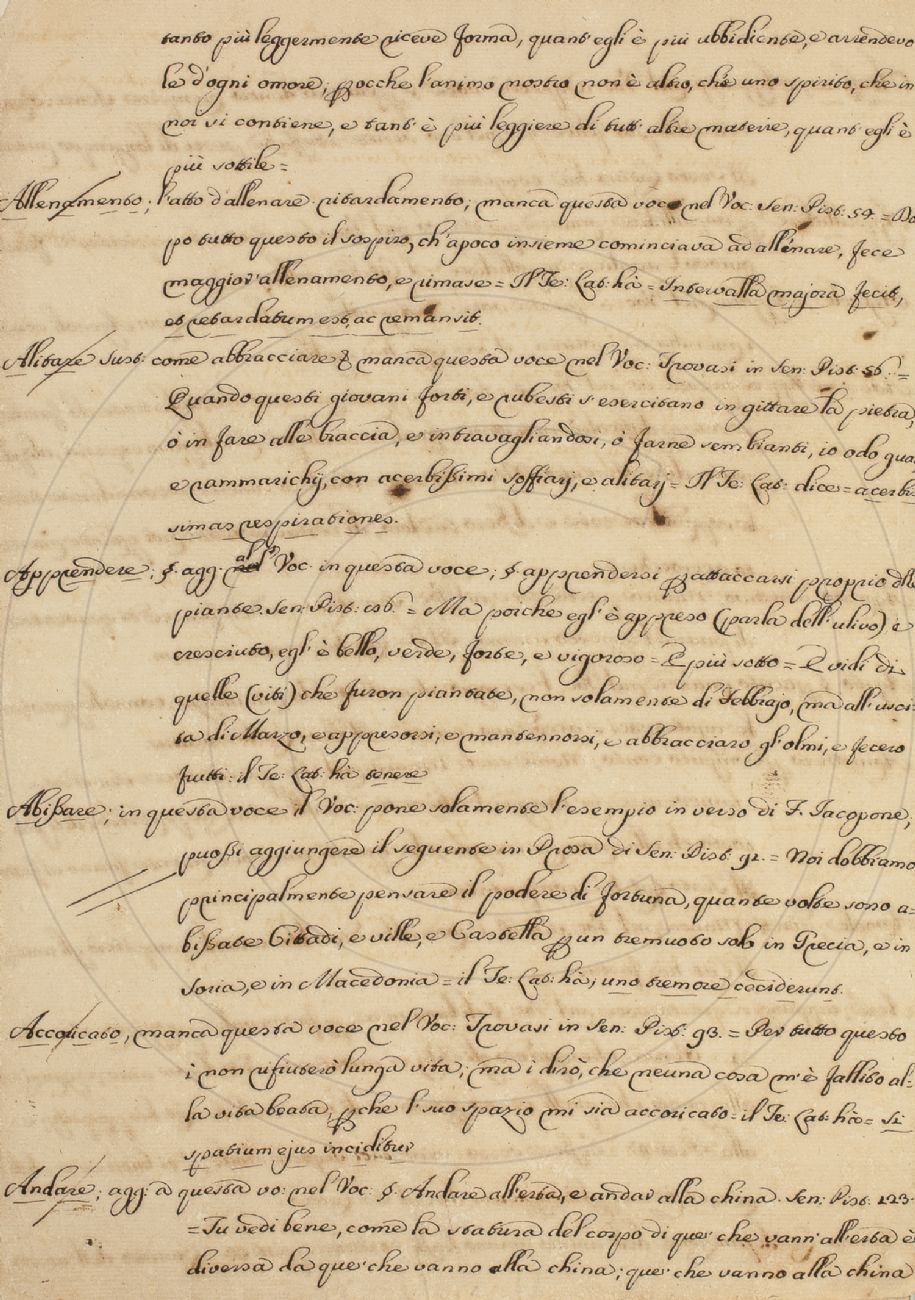 tanto più leggermente riceve forma, quant'egli è più ubbidiente, e arrendevo
le d'ogni omore; perocche l'animo nostro non è altro, che uno spirito, che in
noi si contiene, e tant'è più leggiere di tutt'altre materie, quant'egli è
più sottile =
Allenamento; l'atto d'allenare ritardamento; manca questa voce nel Voc: Sen: Pist: 54. = Do
po tutto questo il sospiro, ch'apoco insieme cominciava ad allenare, fece
maggior'allenamento, e rimase = Il Te: Lat: hà = Intervalla majora fecit,
et retardatum est, ac remansit.
Alitare sust: come abbracciare & manca questa voce nel Voc: Trovasi in Sen: Pist: 56. =
Quando questi giovani forti, e rubesti s'esercitano in gittare la pietra,
ò in fare alle braccia, e intravagliandosi, ò farne sembianti, io odo gua
e rammarichij, con acerbißimi soffiarj, e alitarj = Il Te: Lat: dice = acerbis
simas respirationes.
Apprendere; §. agg. al Voc: in questa voce; § apprendersi per attaccarsi proprio delle
piante. Sen: Pist: 126. = Ma poiche egl'è appreso (parla dell'ulivo) e
cresciuto, egl'è bello, verde, forte, e vigoroso = E più sotto = E vidi di
quelle (viti) che furon piantate, non solamente di Febbrajo, ma all'usci:
ta di Marzo, e appresorsi, e mantennorsi, e abbracciaro gl'olmi, e fecero
frutti: il Te: Lat: hà tenere
Abißare; in questa voce il Voc: pone solamente l'esempio in verso di F. Jacopone;
puoßi aggiungere il seguente in Prosa di Sen: Pist: 91. = Noi dobbiamo
principalmente pensare il podere di fortuna, quante volte sono a=
bißate Cittadi, e ville, e Castella per un tremuoto solo in Grecia, e in
Soria, e in Macedonia = il Te: Lat: hà, uno tremore ceciderunt.
Accoricato, manca questa voce nel Voc: Trovasi in Sen: Pist: 93. = Per tutto questo
i' non rifiuterò lunga vita; ma i' dirò, che neuna cosa m'è fallito al:
la vita beata, perche l'suo spazio mi sia accoricato = il Te: Lat: hà = si
spatium ejus inciditur
Andare; agg: a questa vo: nel Voc: §. Andare all'erta, e andar alla china. Sen: Pist: 123.
= Tu vedi bene, come la statura del corpo di que' che vann'all'erta è
diversa da que' che vanno alla china; que' che vanno alla china